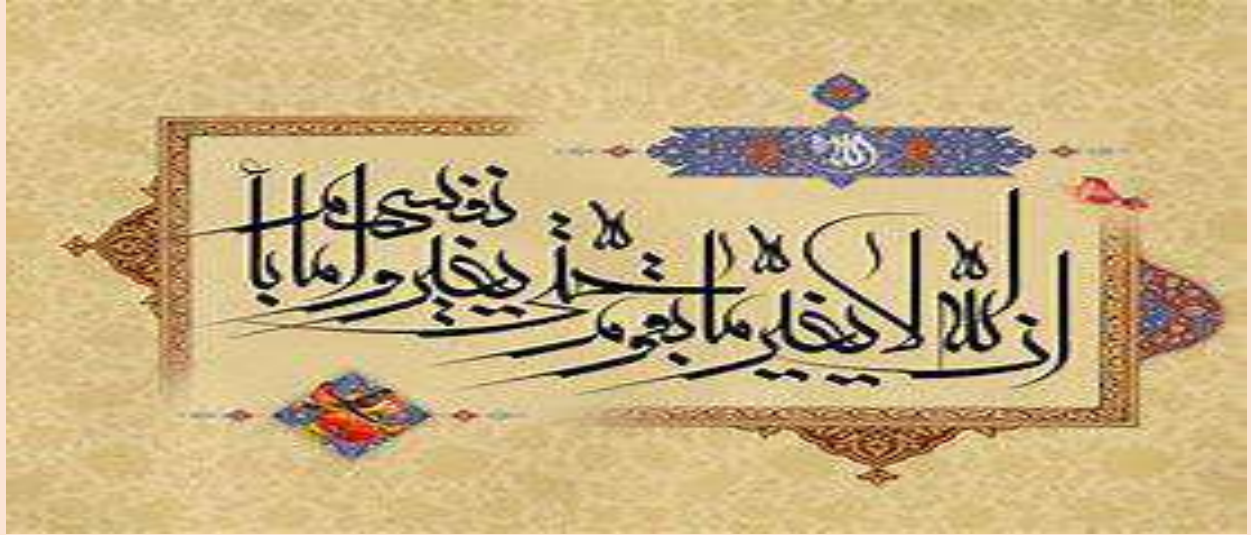 الله
ان الله لا يغير ما بقوم حتى يغيروا ما بأنفسهم